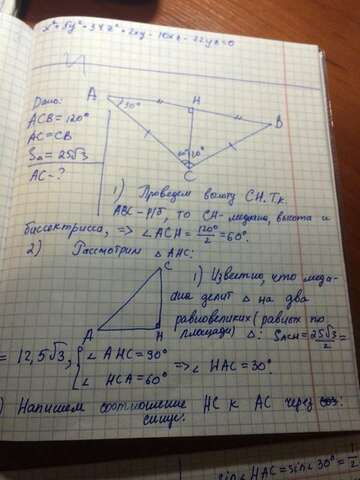 x² + 5y² + 34z² + 2xy - 10xz - 22yz = 0
Дано:
ACB = 120°
AC = CB
S△ = 25√3
AC - ?
A
30°
H
B
60° 60°
C
1) Проведем высоту CH. Тк.
ABC - р/б, то CH - медиана, высота и
биссектриса, => ∠ACH = 120°/2 = 60°.
2) Рассмотрим △ AHC:
C
A
H
1) Известно, что меди-
ана делит △ на два
равновеликих (равных по
площади) △: S△CH = 25√3/2 =
= 12,5√3, { ∠ AHC = 90°
∠ HCA = 60° => ∠ HAC = 30°.
) Напишем соотношение HC к AC через
синус.
∠HAC = sin∠30° = 1/2